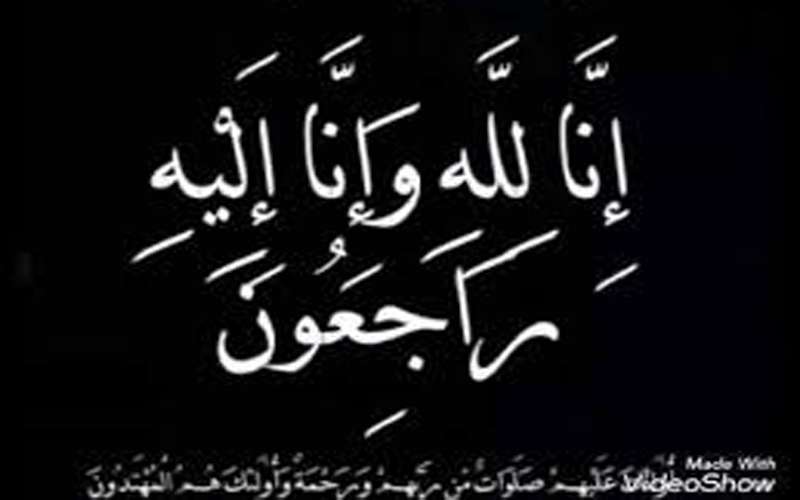 إِنَّا لِلَّهِ وَإِنَّا إِلَيْهِ
رَاجِعُونَ
عَلَيْهِمْ صَلَوَاتٌ مِّن رَّبِّهِمْ وَرَحْمَةٌ وَأُولَئِكَ هُمُ الْمُهْتَدُونَ
Made With
VideoShow